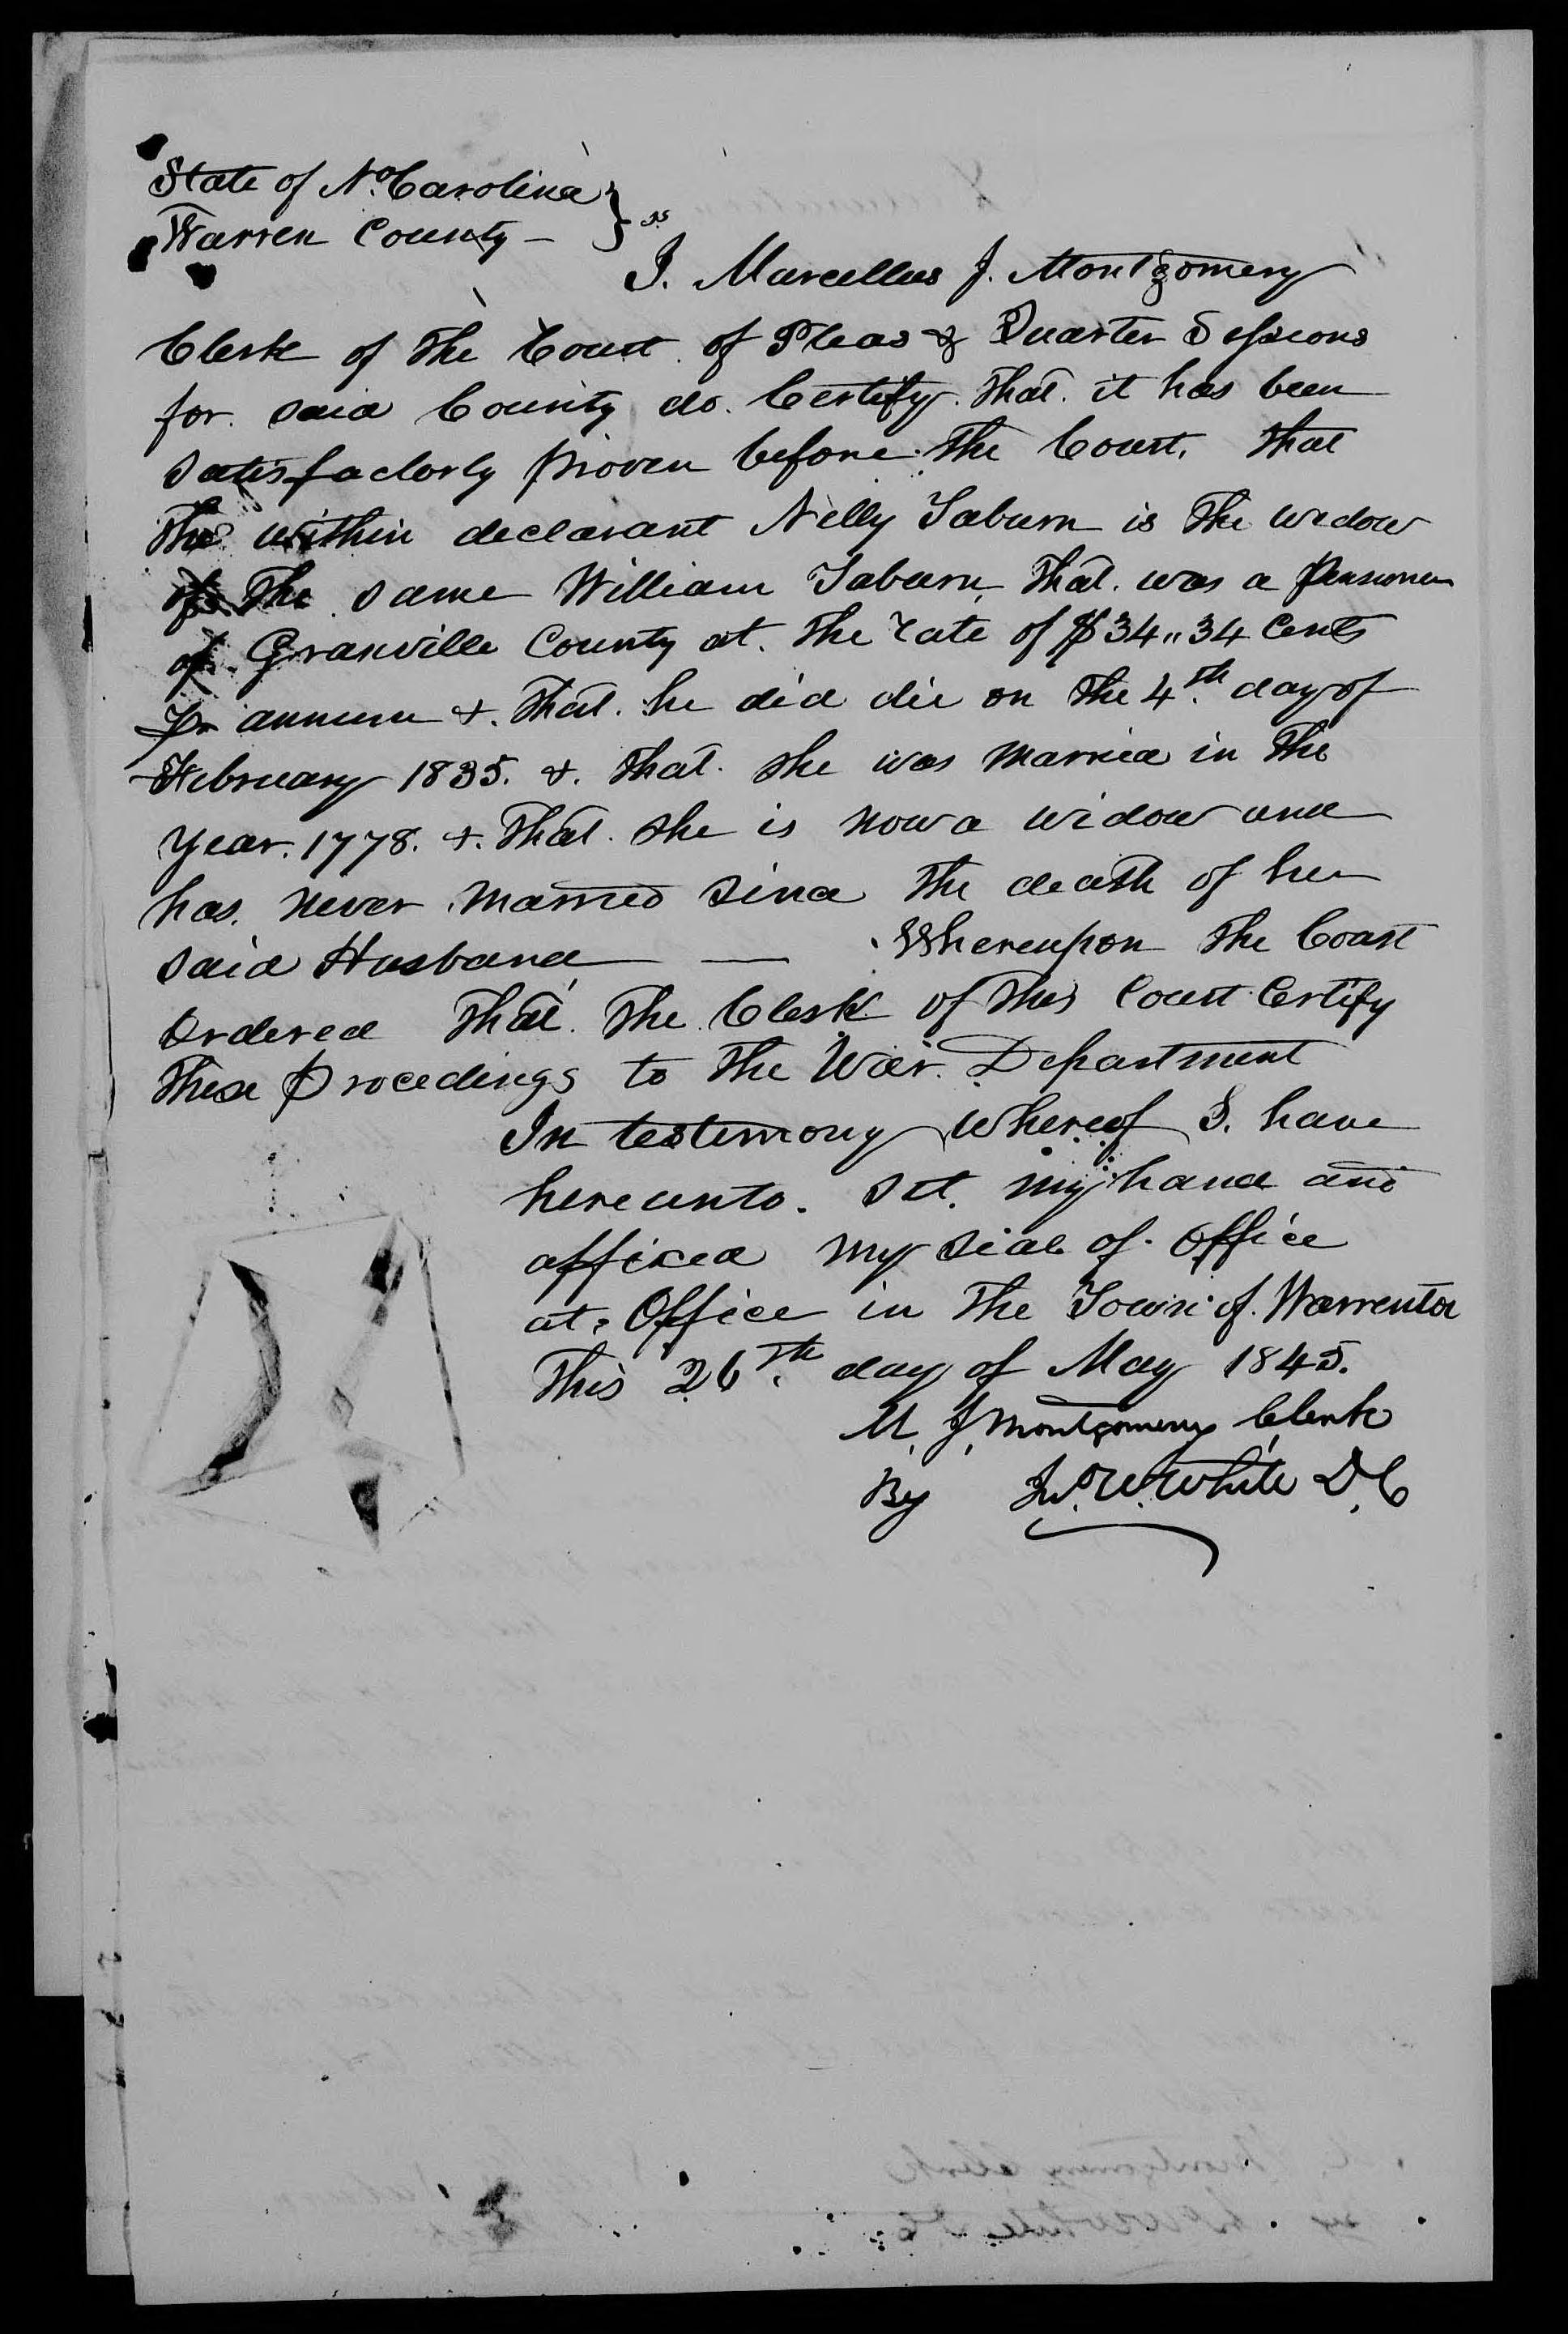 State of No. Carolina } ss
Warren County —
I. Marcellus J. Montgomery
Clerk of the Court of Pleas & Quarter Sessions
for said County do Certify that it has been
satisfactorly proven before the Court, that
the within declarant Nelly Taburn is the widow
of the same William Taburn that was a Pensioner
of Granville County at the rate of $34„34 Cents
pr annum &. that he did die on the 4th day of
February 1835. &. that she was Married in the
year. 1778. &. that she is now a widow and
has never married since the death of her
said Husband — Whereupon the Court
Ordered that the Clerk of this Court Certify
these Procedings to the War Department
In testimony whereof I. have
hereunto. set. my hand and
affixed my seal of. office
at Office in the Town of. Warrenton
this 26th day of May 1845.
M. J. Montgomery Clerk
By Jno. W. White D.C